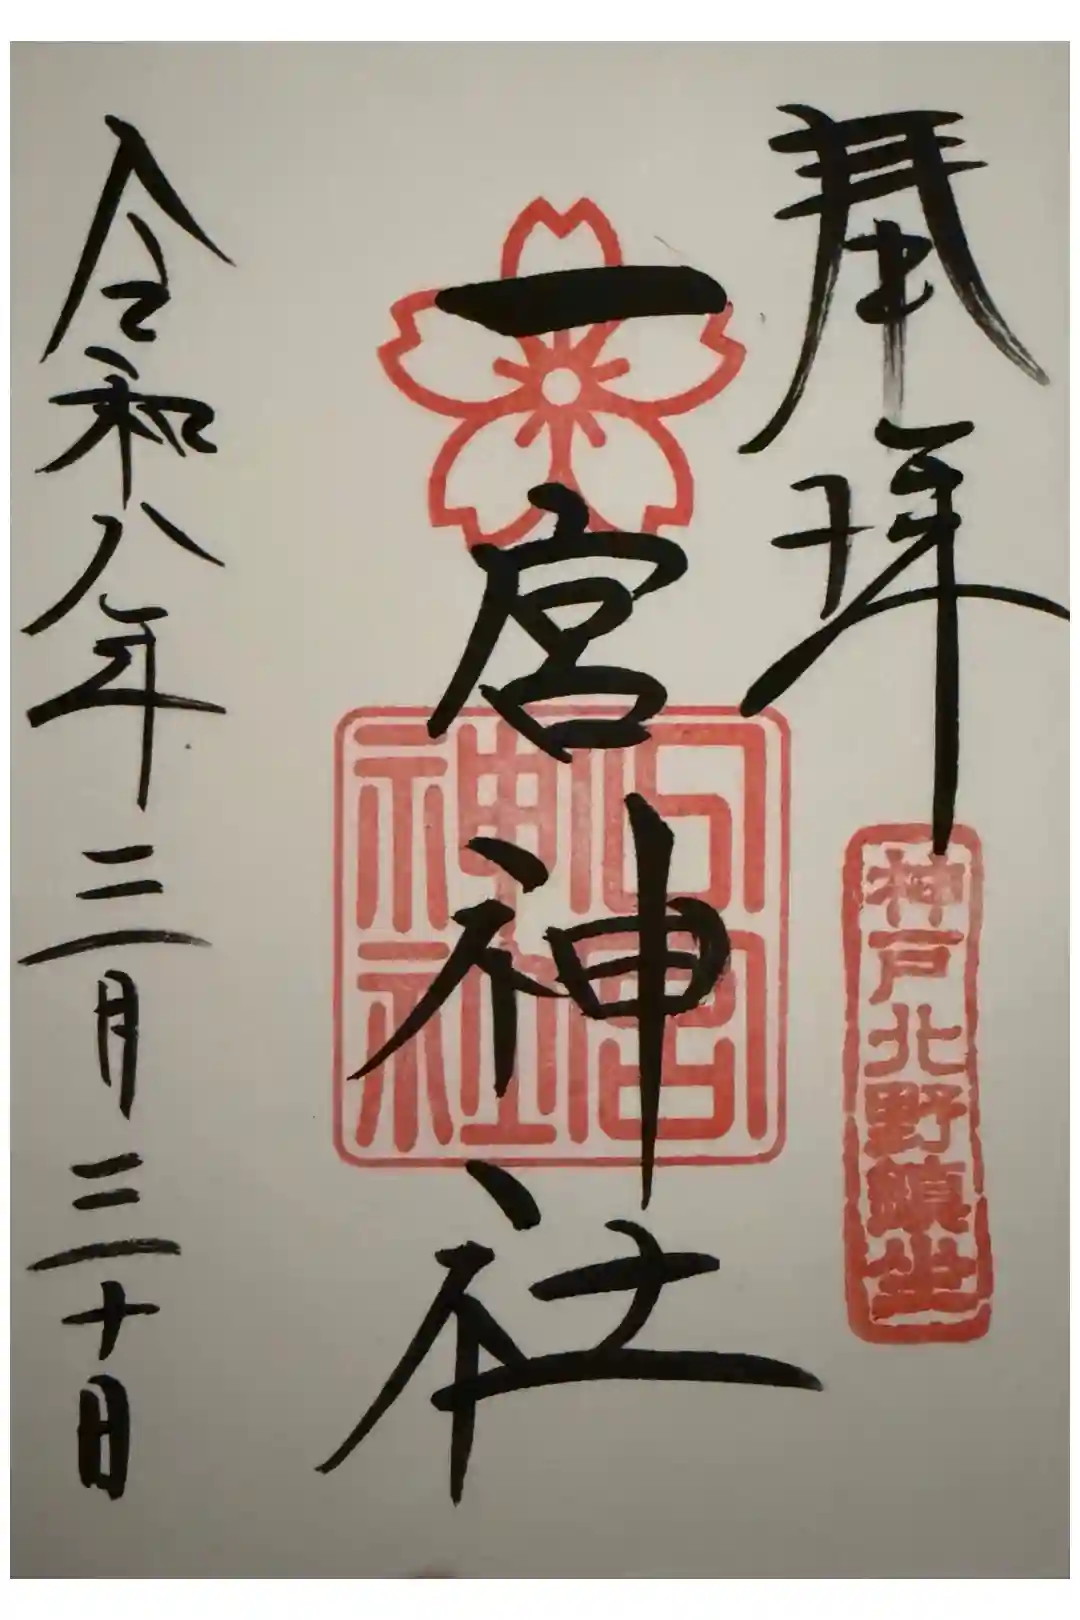 奉拝
神戸北野鎮坐
一宮神社
宮
神社
令和八年三月三十日